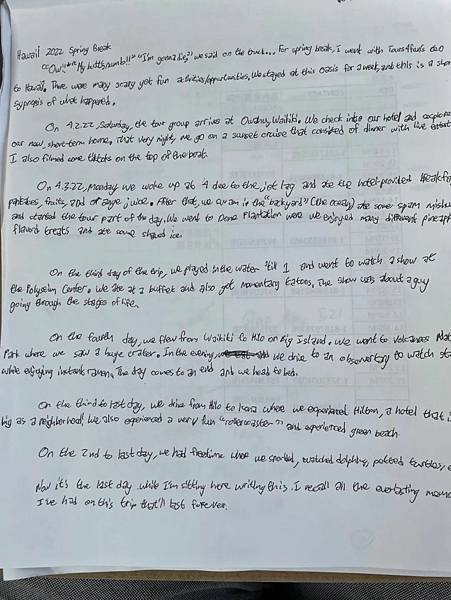 Hawaii 2022 Spring Break
"Ow!!" "My butts numb!!" "I'm gonna die," we said on the truck... For spring break, I went with Tours4fun's duo
to Hawaii. There were many scary yet fun activities/opportunities. We stayed at this oasis for a week, and this is a short
sypnosis of what happened.
On 4.2.22, Saturday, the tour group arrives at Owahu, Waikiki. We check into our hotel and explore
our new, short-term home. That very night, we go on a sunset cruise that consited of dinner with live
I also filmed some tiktoks on the top of the boat.
On 4.3.22, Monday we woke up at 4 due to the jet lag and ate the hotel-provided breakfast
patatoes, fruits, and orange juice. After that, we swam in the "backyard" (the ocean) ate some spam
and started the tour part of the day. We went to Dole Plantation were we enjoyed many different
flavord treats and ate some shaved ice.
On the third day of the trip, we played in the water 'till 1 and went to watch a show at
the Polyseian Center. We ate at a buffet and also got momentary tatoos. The show was about a guy
going through the stages of life.
On the fourth day, we flew from Waikiki to Hilo on Big Island. We went to Volcanos
Park where we saw a huge crater. In the evening, we drive to an observertory to watch
while enjoying instant ramen. The day comes to an end and we head to bed.
On the third to last day, we drive from Hilo to Kona where we experienced Hilton, a hotel that
big as a neighborhood! We also experienced a very fun "rollercoaster" and experienced green beach.
On the 2nd to last day, we had freetime where we snorted, watched dolphins, petted turtles,
Now it's the last day while I'm sitting here writing this. I recall all the everlasting
I've had on this trip that'll last forever.